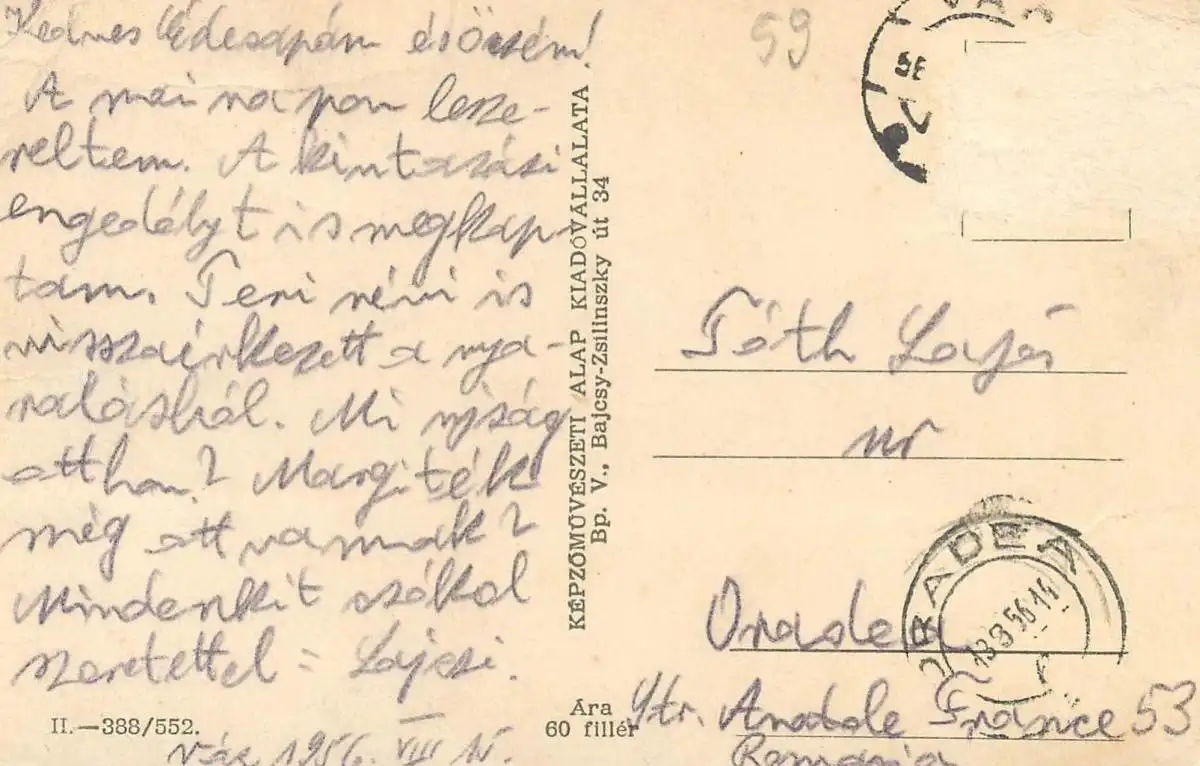 Kedves Édesapám és Öcsém!
A mai napon lesze-
reltem. A kiutazási
engedélyt is megkap-
tam. Teri néni is
visszaérkezett a nya-
ralásból. Mi ujság
otthon? Margiték
még ott vannak?
Mindenkit csókol
szeretettel: Lajcsi.
II.—388/552.
Vác, 1956. VIII
KÉPZŐMŰVÉSZETI ALAP KIADÓVÁLLALATA
Bp. V., Bajcsy-Zsilinszky út 34
Ára
60 fillér
59
56
Tóth Lajos
ur
ORADEA
13 8 56
Oradea
Str. Anatole France 53
Romania